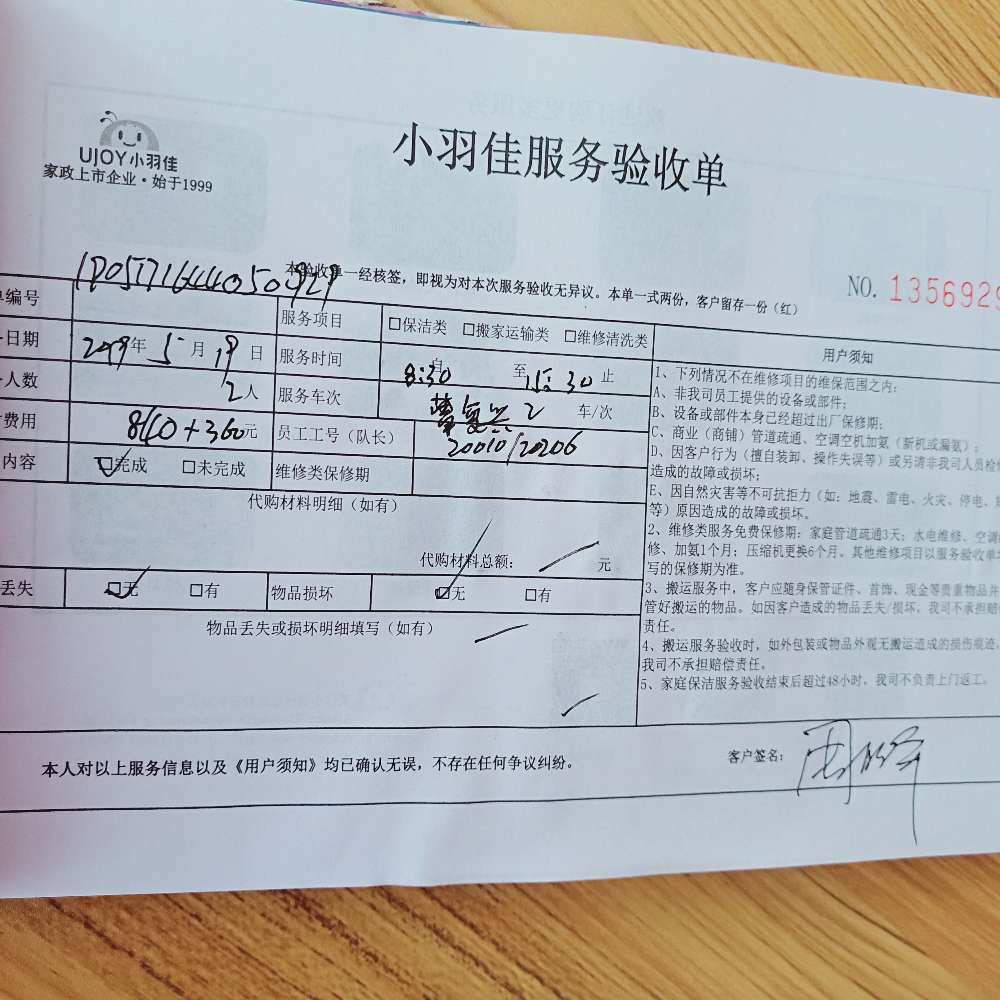 UJOY小羽佳
家政上市企业·始于1999
小羽佳服务验收单
本验收单一经核签，即视为对本次服务验收无异议。本单一式两份，客户留存一份（红）
NO. 1356929
编号 服务项目 □保洁类 □搬家运输类 □维修清洗类
日期 年 5 月 19 日 服务时间 自 8:30 至 15:30 止
人数 2人 服务车次 2 车/次
费用 840+360元 员工工号（队长） 20010/20206
内容 □完成 □未完成 维修类保修期
代购材料明细（如有）
代购材料总额： 元
丢失 □无 □有 物品损坏 □无 □有
物品丢失或损坏明细填写（如有）
用户须知
1、下列情况不在维修项目的维保范围之内：
A、非我司员工提供的设备或部件；
B、设备或部件本身已经超过出厂保修期；
C、商业（商铺）管道疏通、空调空机加氨（新机或漏氨）；
D、因客户行为（擅自装卸、操作失误等）或另请非我司人员检修
造成的故障或损坏；
E、因自然灾害等不可抗拒力（如：地震、雷电、火灾、停电、
等）原因造成的故障或损坏。
2、维修类服务免费保修期：家庭管道疏通3天；水电维修、空调
修、加氨1个月；压缩机更换6个月，其他维修项目以服务验收单
写的保修期为准。
3、搬运服务中，客户应随身保管证件、首饰、现金等贵重物品并
管好搬运的物品。如因客户造成的物品丢失/损坏，我司不承担赔
责任。
4、搬运服务验收时，如外包装或物品外观无搬运造成的损伤痕迹，
我司不承担赔偿责任。
5、家庭保洁服务验收结束后超过48小时，我司不负责上门返工。
本人对以上服务信息以及《用户须知》均已确认无误，不存在任何争议纠纷。
客户签名：